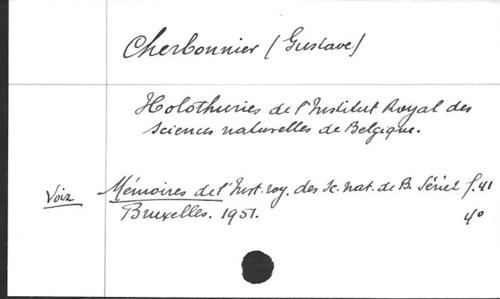 Cherbonnier (Gustave)
Holothuries de l'Institut Royal des
Sciences naturelles de Belgique.
Voir Mémoires de l'Inst. roy. des Sc. nat. de B. Série 2 f. 41
Bruxelles. 1951. 4°